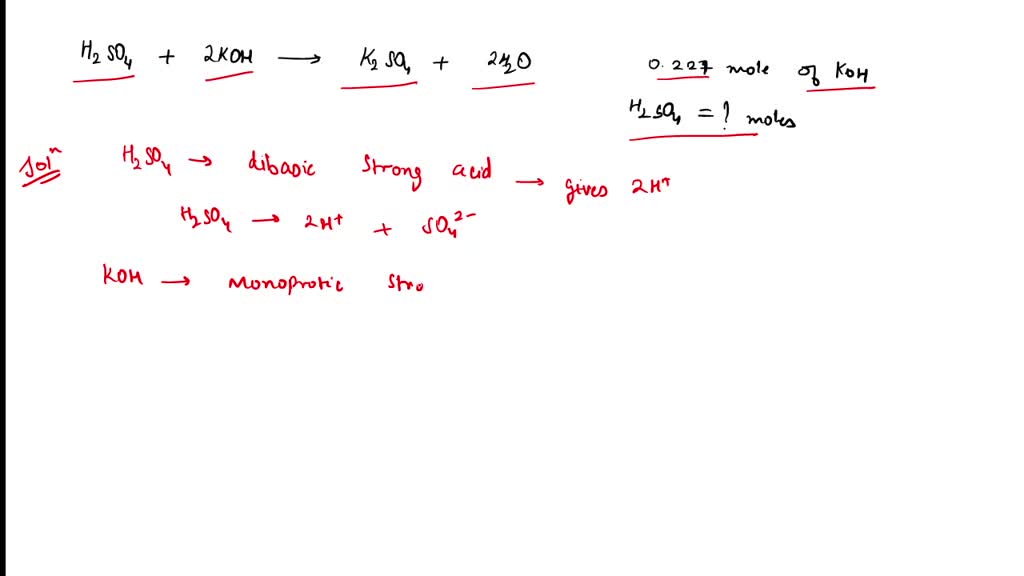 H₂SO₄ + 2KOH ⟶ K₂SO₄ + 2H₂O
0.227 mole of KOH
H₂SO₄ = ? moles
Solⁿ
H₂SO₄ → dibasic strong acid → gives 2H⁺
H₂SO₄ → 2H⁺ + SO₄²⁻
KOH → Monoprotic stro